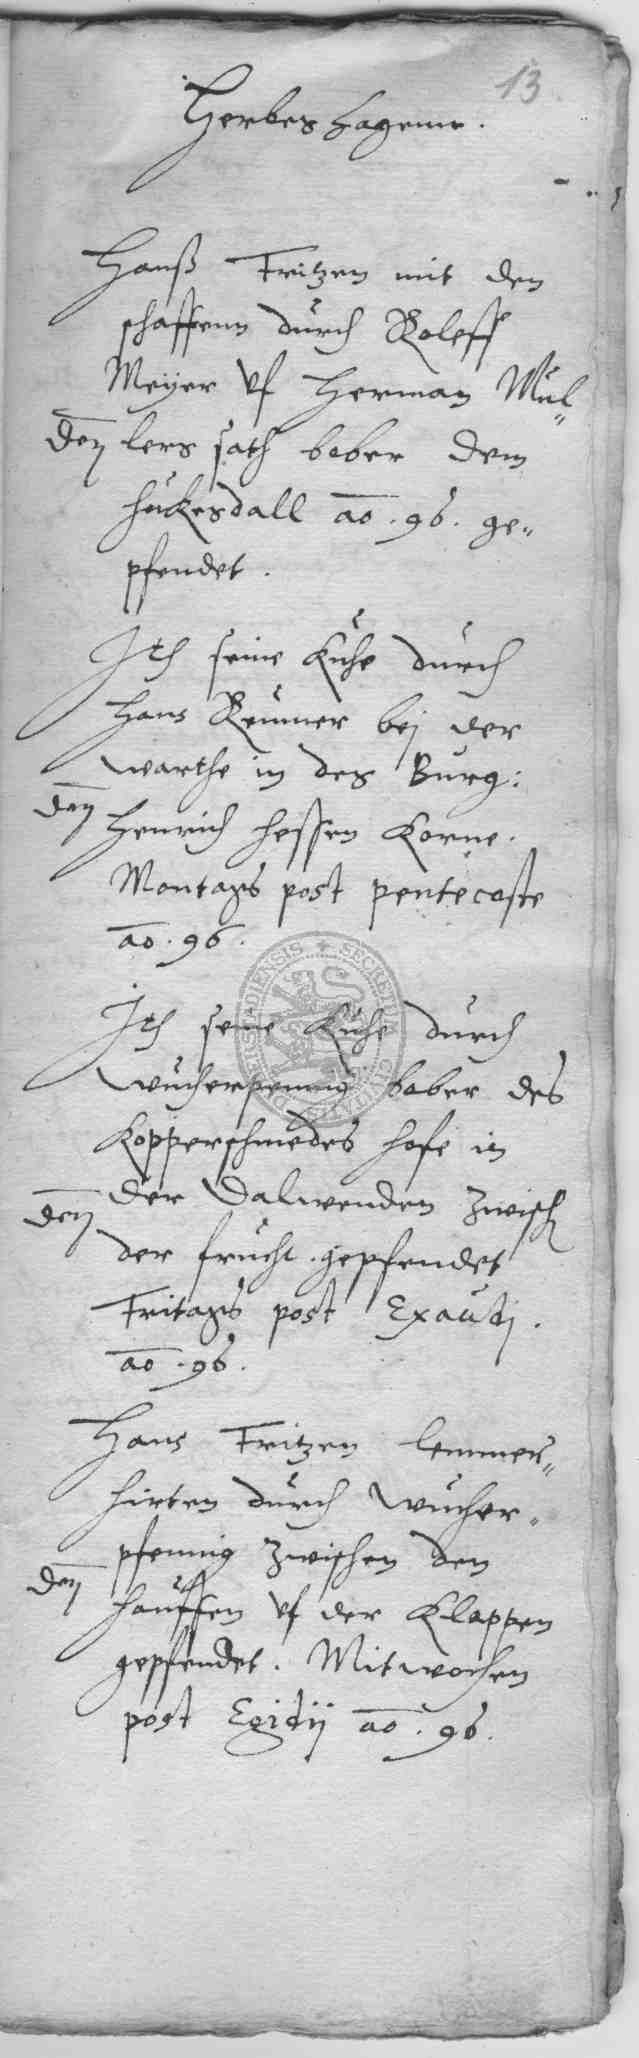 13
Herbershagenn.
Hanß Fritzen mit den
schaffenn durch Roleff
Meÿer vf Herman Mul„
den lers sath bober dem
hukesdall ao. 96. ge„
pfendet.
Ith seine Kuhe durch
Hans Reumer beÿ der
warthe in des Burg:
den Henrich hessen Korne.
Montags post pentecoste
ao. 96.
Ith seine Kuhe durch
wucherpennig bober des
Kopperschmedes hofe in
der Dalwenden zwisch
den
der frucht gepfendet
Fritags post Exaudj.
ao. 96.
Hans Fritzen lemmer„
hirten durch wucher„
pfennig zwischen den
den hauffen vf der Klappen
gepfendet. Mitwochen
post Egidij ao. 96.
SECRETUM